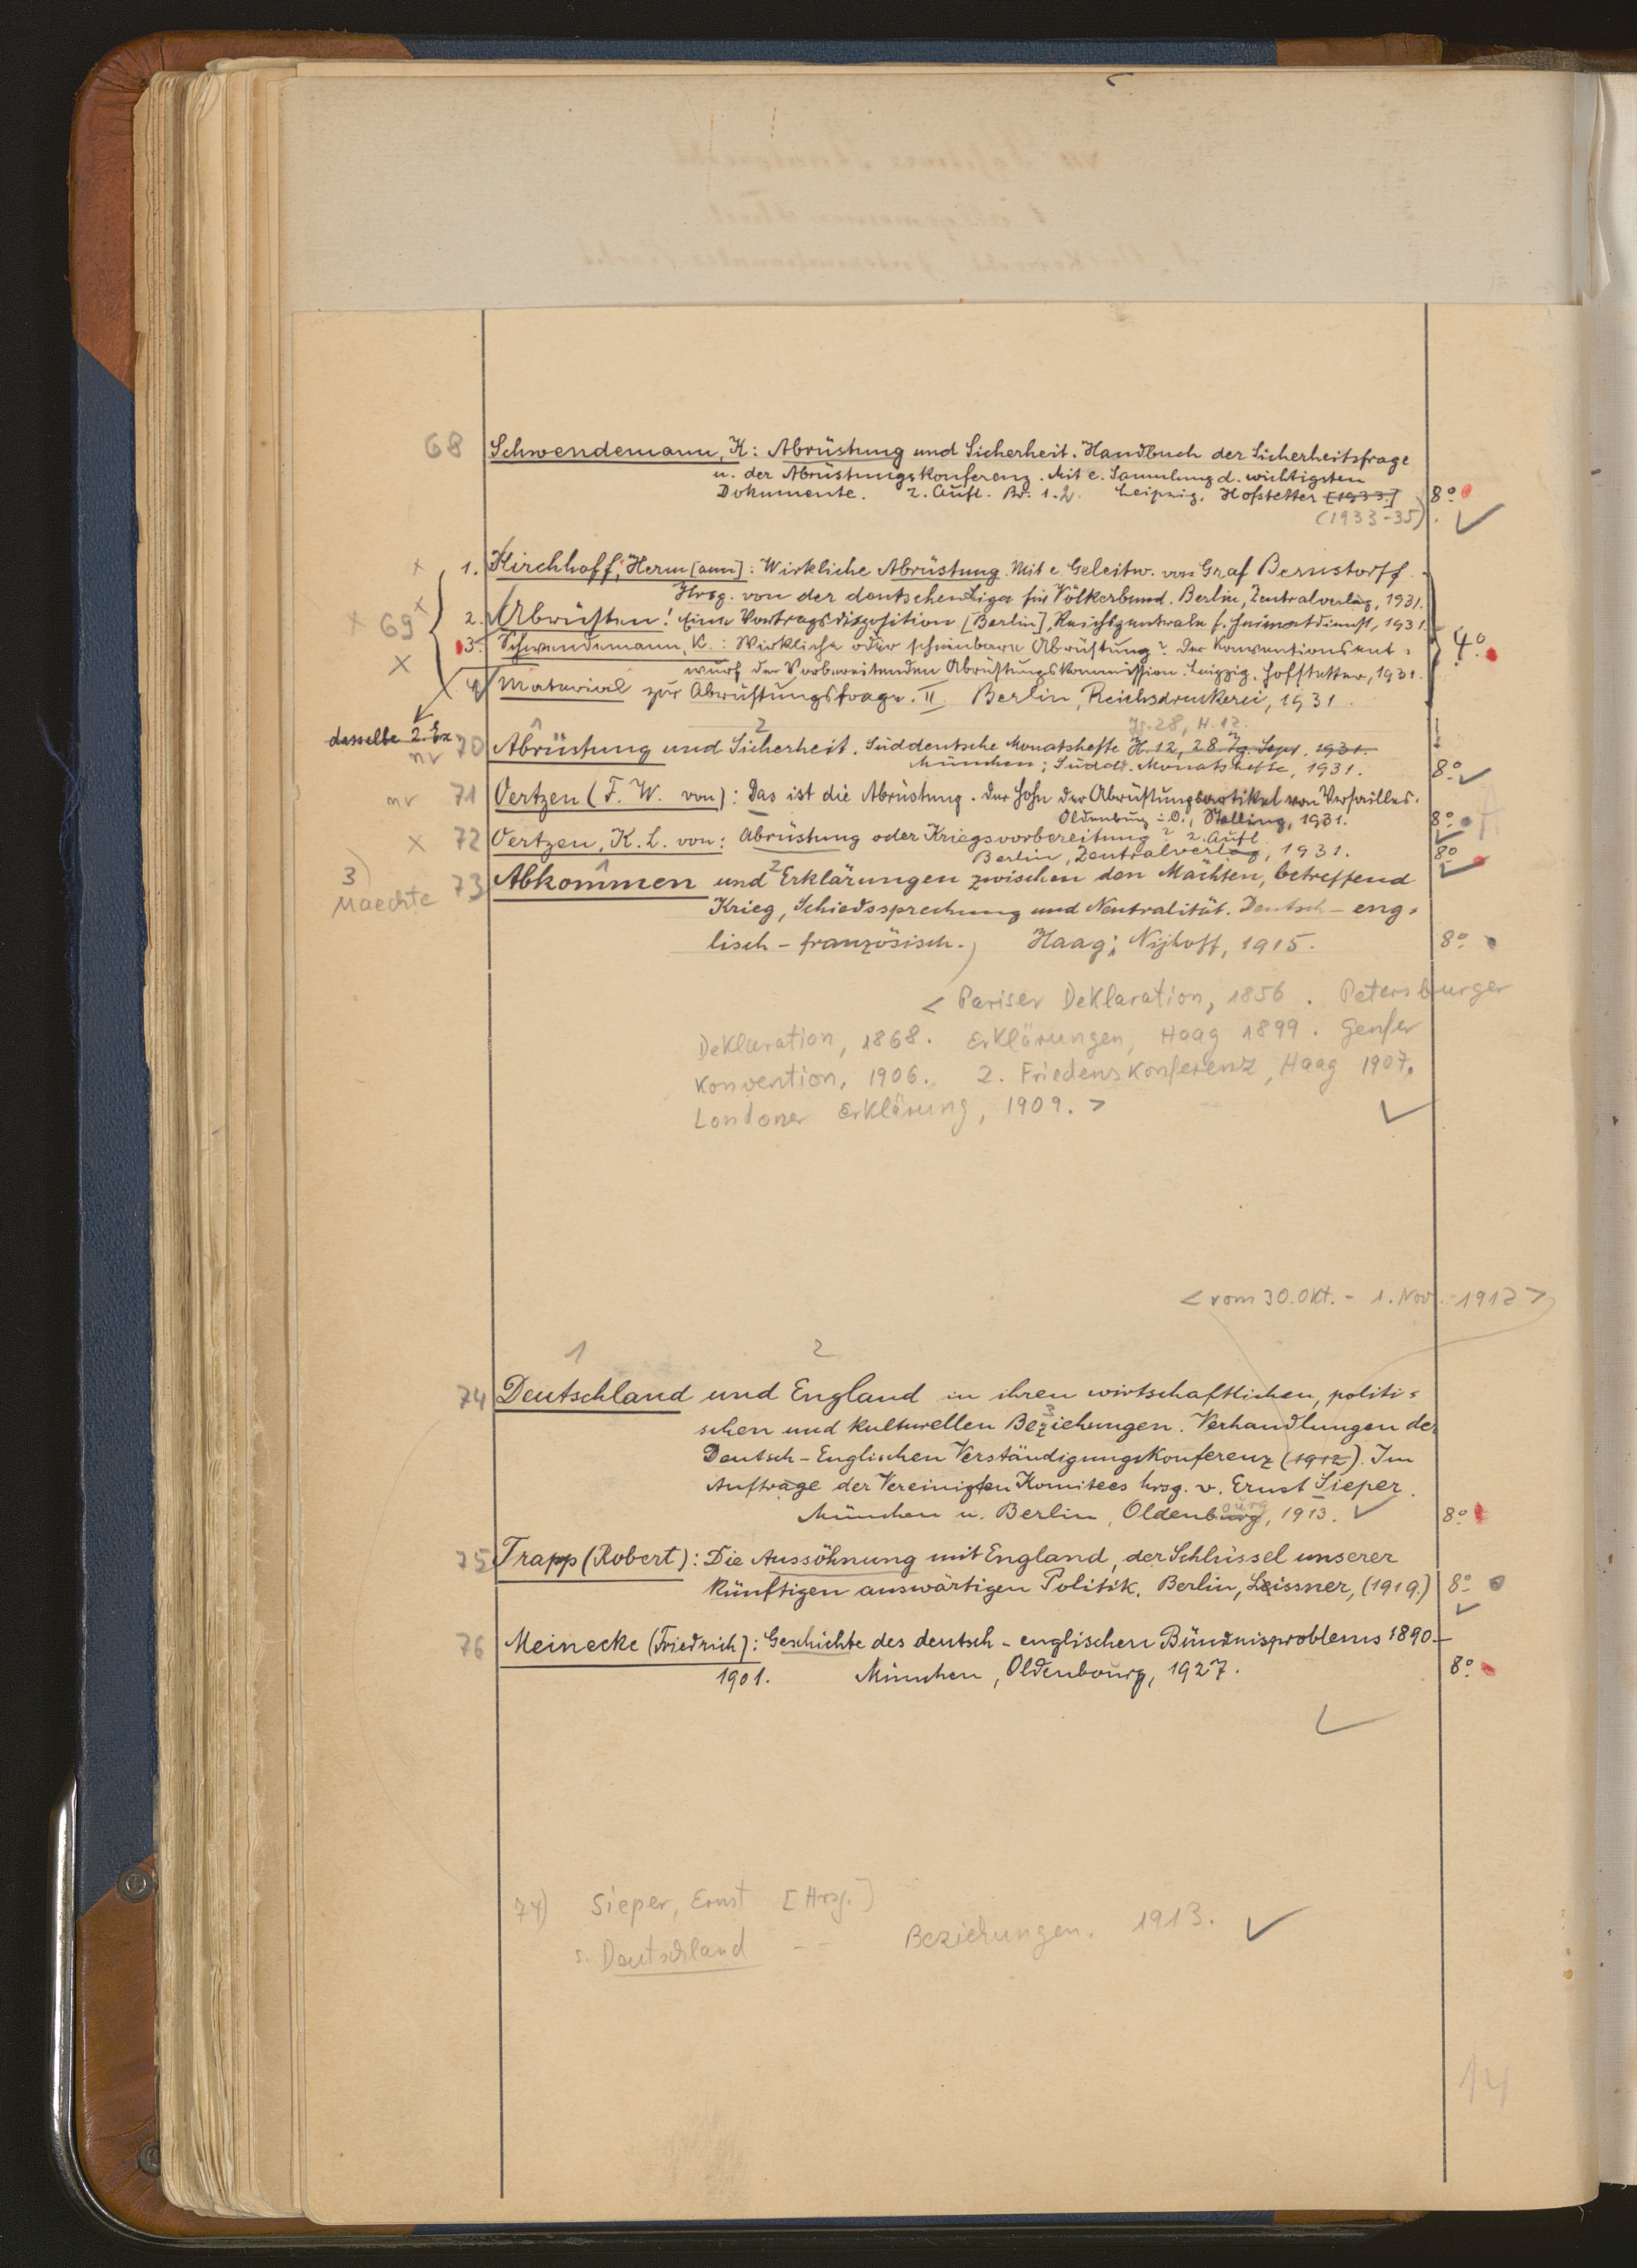 68 Schwendemann, K: Abrüstung und Sicherheit. Handbuch der Sicherheitsfrage
u. der Abrüstungskonferenz. Mit e. Sammlung d. wichtigsten
Dokumente. 2. Aufl. Bd. 1.2. Leipzig, Hofstetter [1933.] 8º
(1933-35).
1. Kirchhoff, Herm[ann]: Wirkliche Abrüstung. Mit e. Geleitw. von Graf Bernstorff.
Hrsg. von der deutschen Liga für Völkerbund. Berlin, Zentralverlag, 1931.
69 2. Abrüsten! Eine Vortragsdisposition [Berlin], Reichszentrale f. Heimatdienst, 1931.
3. Schwendemann, K.: Wirkliche oder scheinbare Abrüstung? Der Konventionsent= 4º
wurf der Vorbereitenden Abrüstungskommission. Leipzig, Hofstetter, 1931.
4. Material zur Abrüstungsfrage. II. Berlin, Reichsdruckerei, 1931.
Jg. 28, H. 12.
dasselbe 2. Ex.
nv 70 Abrüstung und Sicherheit. Süddeutsche Monatshefte H. 12, 28. Jg. Sept. 1931.
München; Südd. Monatshefte, 1931. 8º
nv 71 Oertzen (F. W. von): Das ist die Abrüstung. Der Hohn der Abrüstungsartikel von Versailles.
Oldenburg i. O., Stalling, 1931. 8º
72 Oertzen, K. L. von: Abrüstung oder Kriegsvorbereitung? 2. Aufl.
Berlin, Zentralverlag, 1931. 8º
3)
Maechte
73 Abkommen und Erklärungen zwischen den Mächten, betreffend
Krieg, Schiedssprechung und Neutralität. Deutsch-eng=
lisch-französisch. Haag; Nijhoff, 1915. 8º
< Pariser Deklaration, 1856. Petersburger
Deklaration, 1868. Erklärungen, Haag 1899. Genfer
Konvention, 1906. 2. Friedenskonferenz, Haag 1907.
Londoner Erklärung, 1909. >
< vom 30. Okt. - 1. Nov. 1912 >
1 2
74 Deutschland und England in ihren wirtschaftlichen, politi=
schen und kulturellen Beziehungen. Verhandlungen der
Deutsch-Englischen Verständigungskonferenz (1912). Im
Auftrage der Vereinigten Komitees hrsg. v. Ernst Sieper.
München u. Berlin, Oldenbourg, 1913. 8º
75 Trapp (Robert): Die Aussöhnung mit England, der Schlüssel unserer
künftigen auswärtigen Politik. Berlin, Leissner, (1919.) 8º
76 Meinecke (Friedrich): Geschichte des deutsch-englischen Bündnisproblems 1890-
1901. München, Oldenbourg, 1927. 8º
74) Sieper, Ernst [Hrsg.]
s. Deutschland -- Beziehungen. 1913.
14